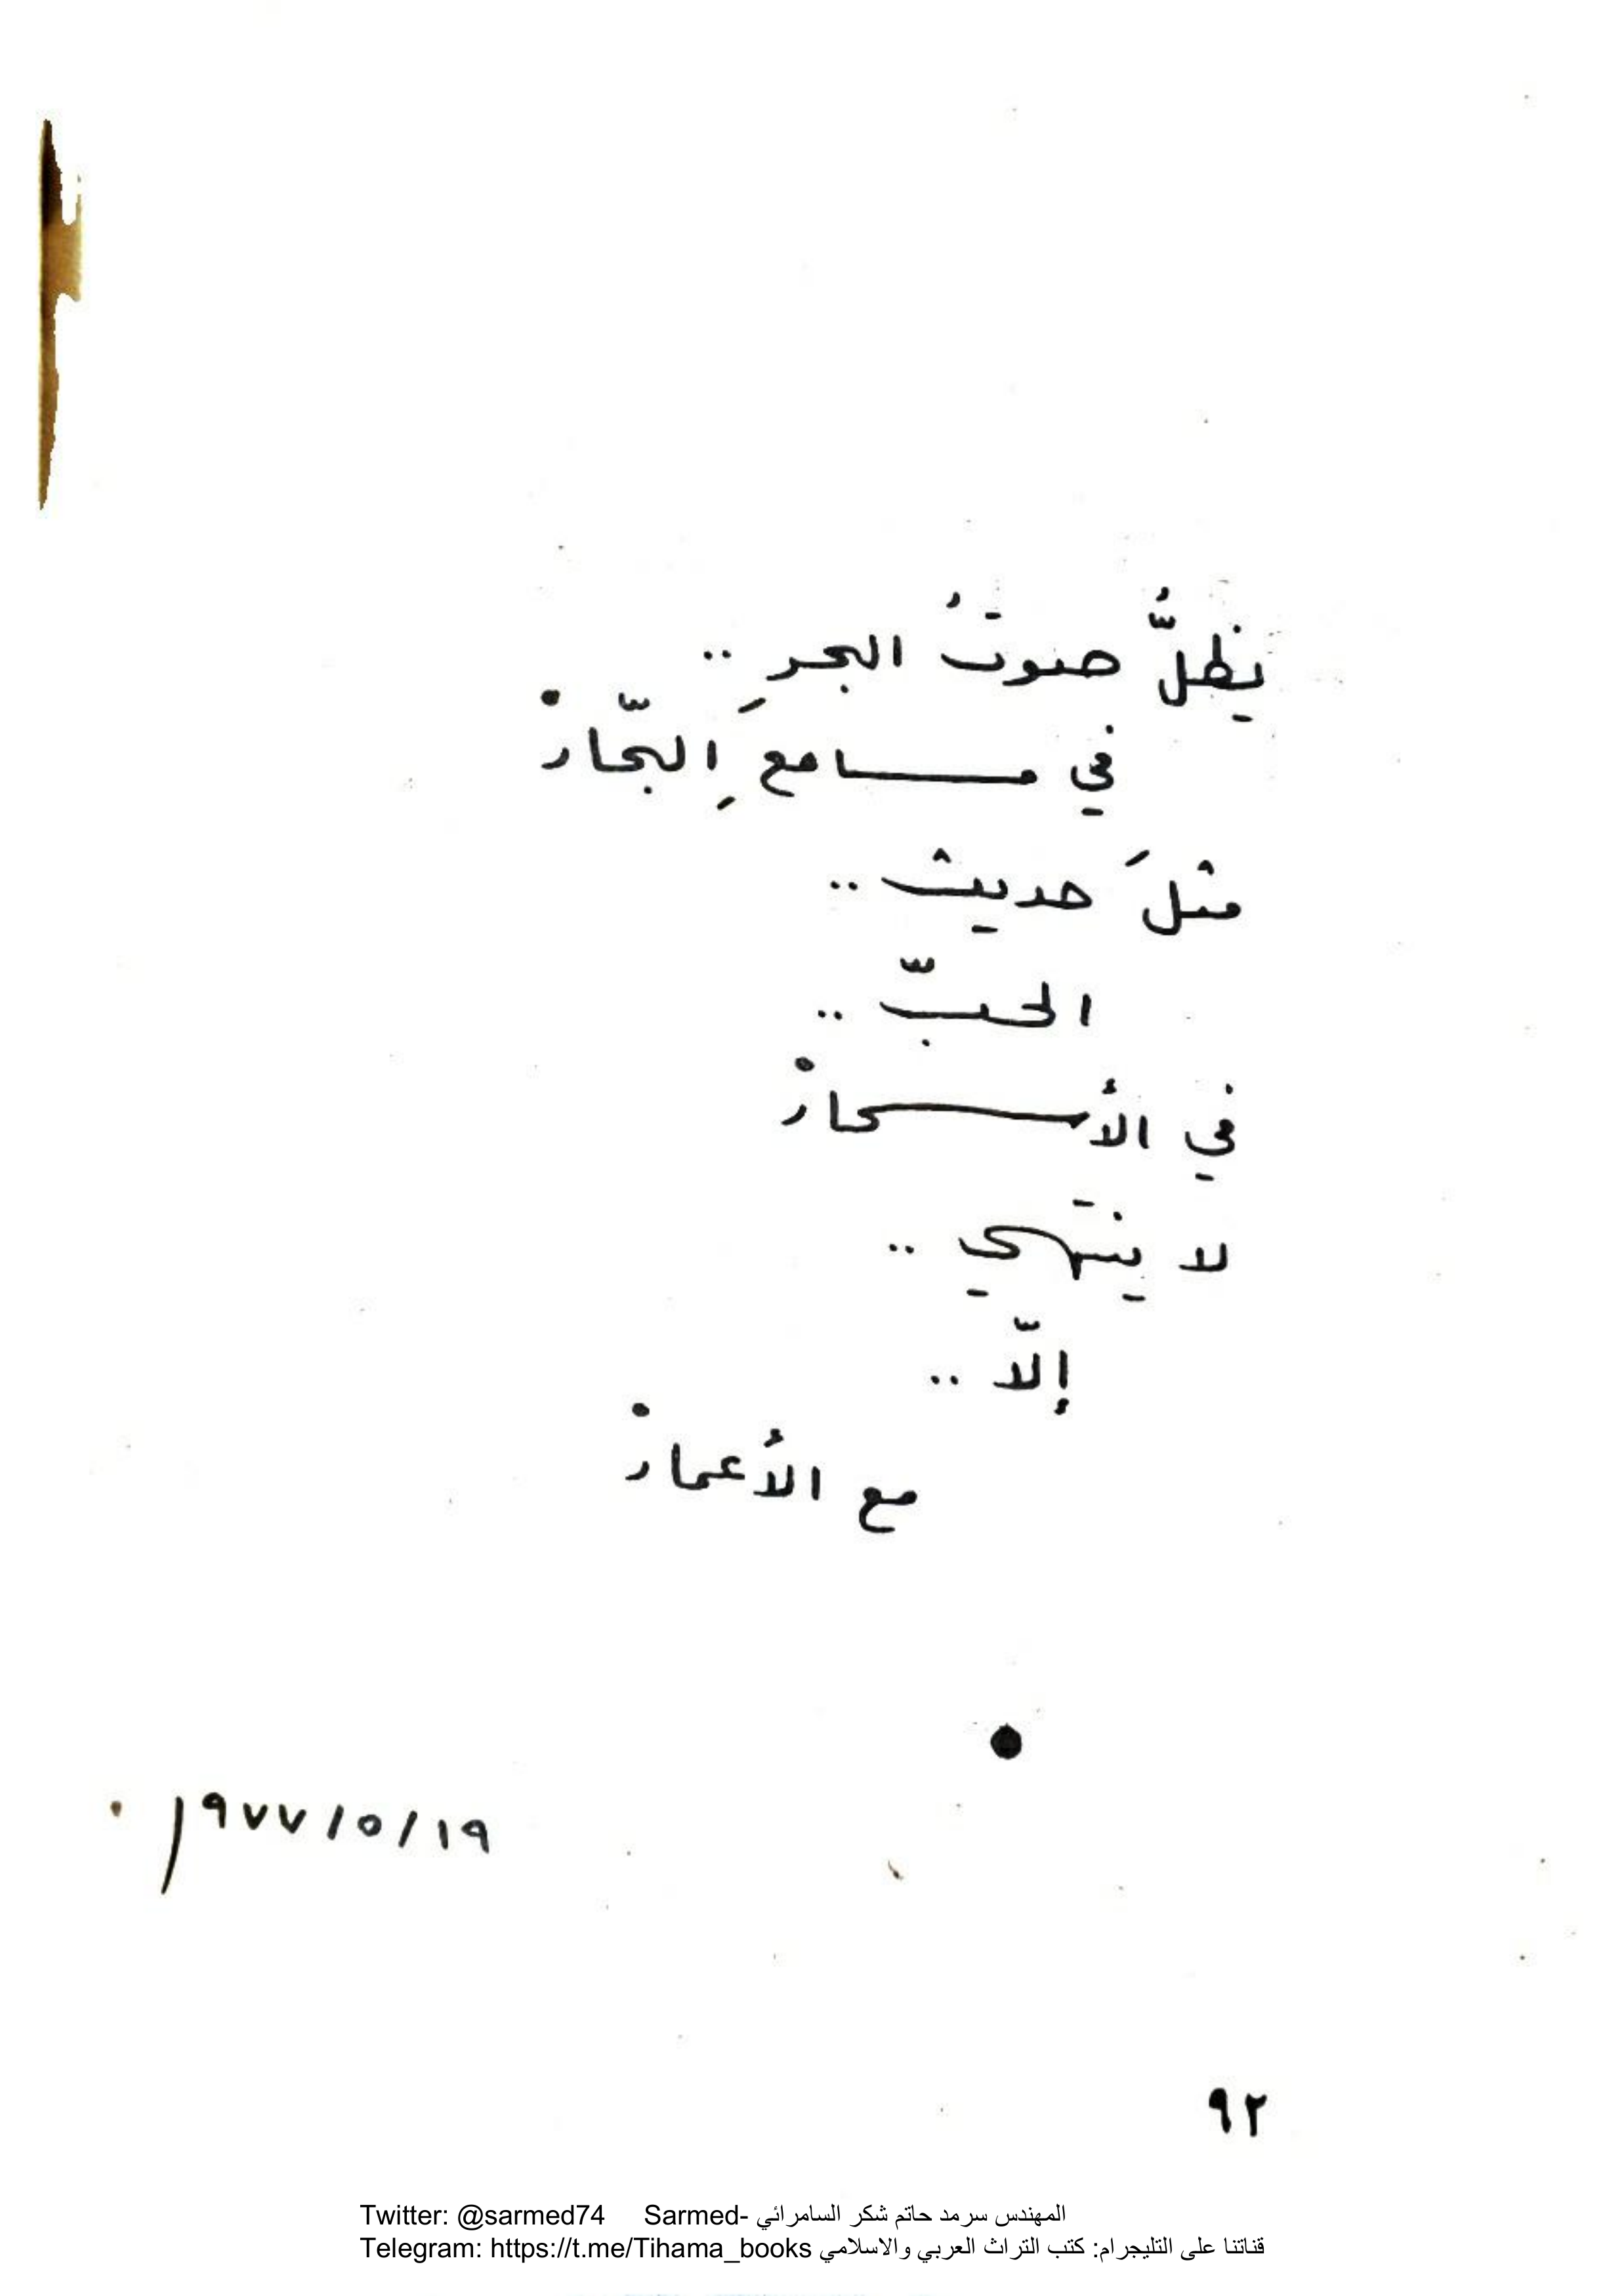 يظلُّ صوتُ البحرِ ..
في مسامعِ البحّارْ
مثلَ حديث ..
الحبّ ..
في الأسحارْ
لا ينتهي ..
إلّا ..
مع الأعمارْ
١٩/٥/١٩٧٧
٩٢
Twitter: @sarmed74 Sarmed- المهندس سرمد حاتم شكر السامرائي
Telegram: https://t.me/Tihama_books قناتنا على التليجرام: كتب التراث العربي والاسلامي